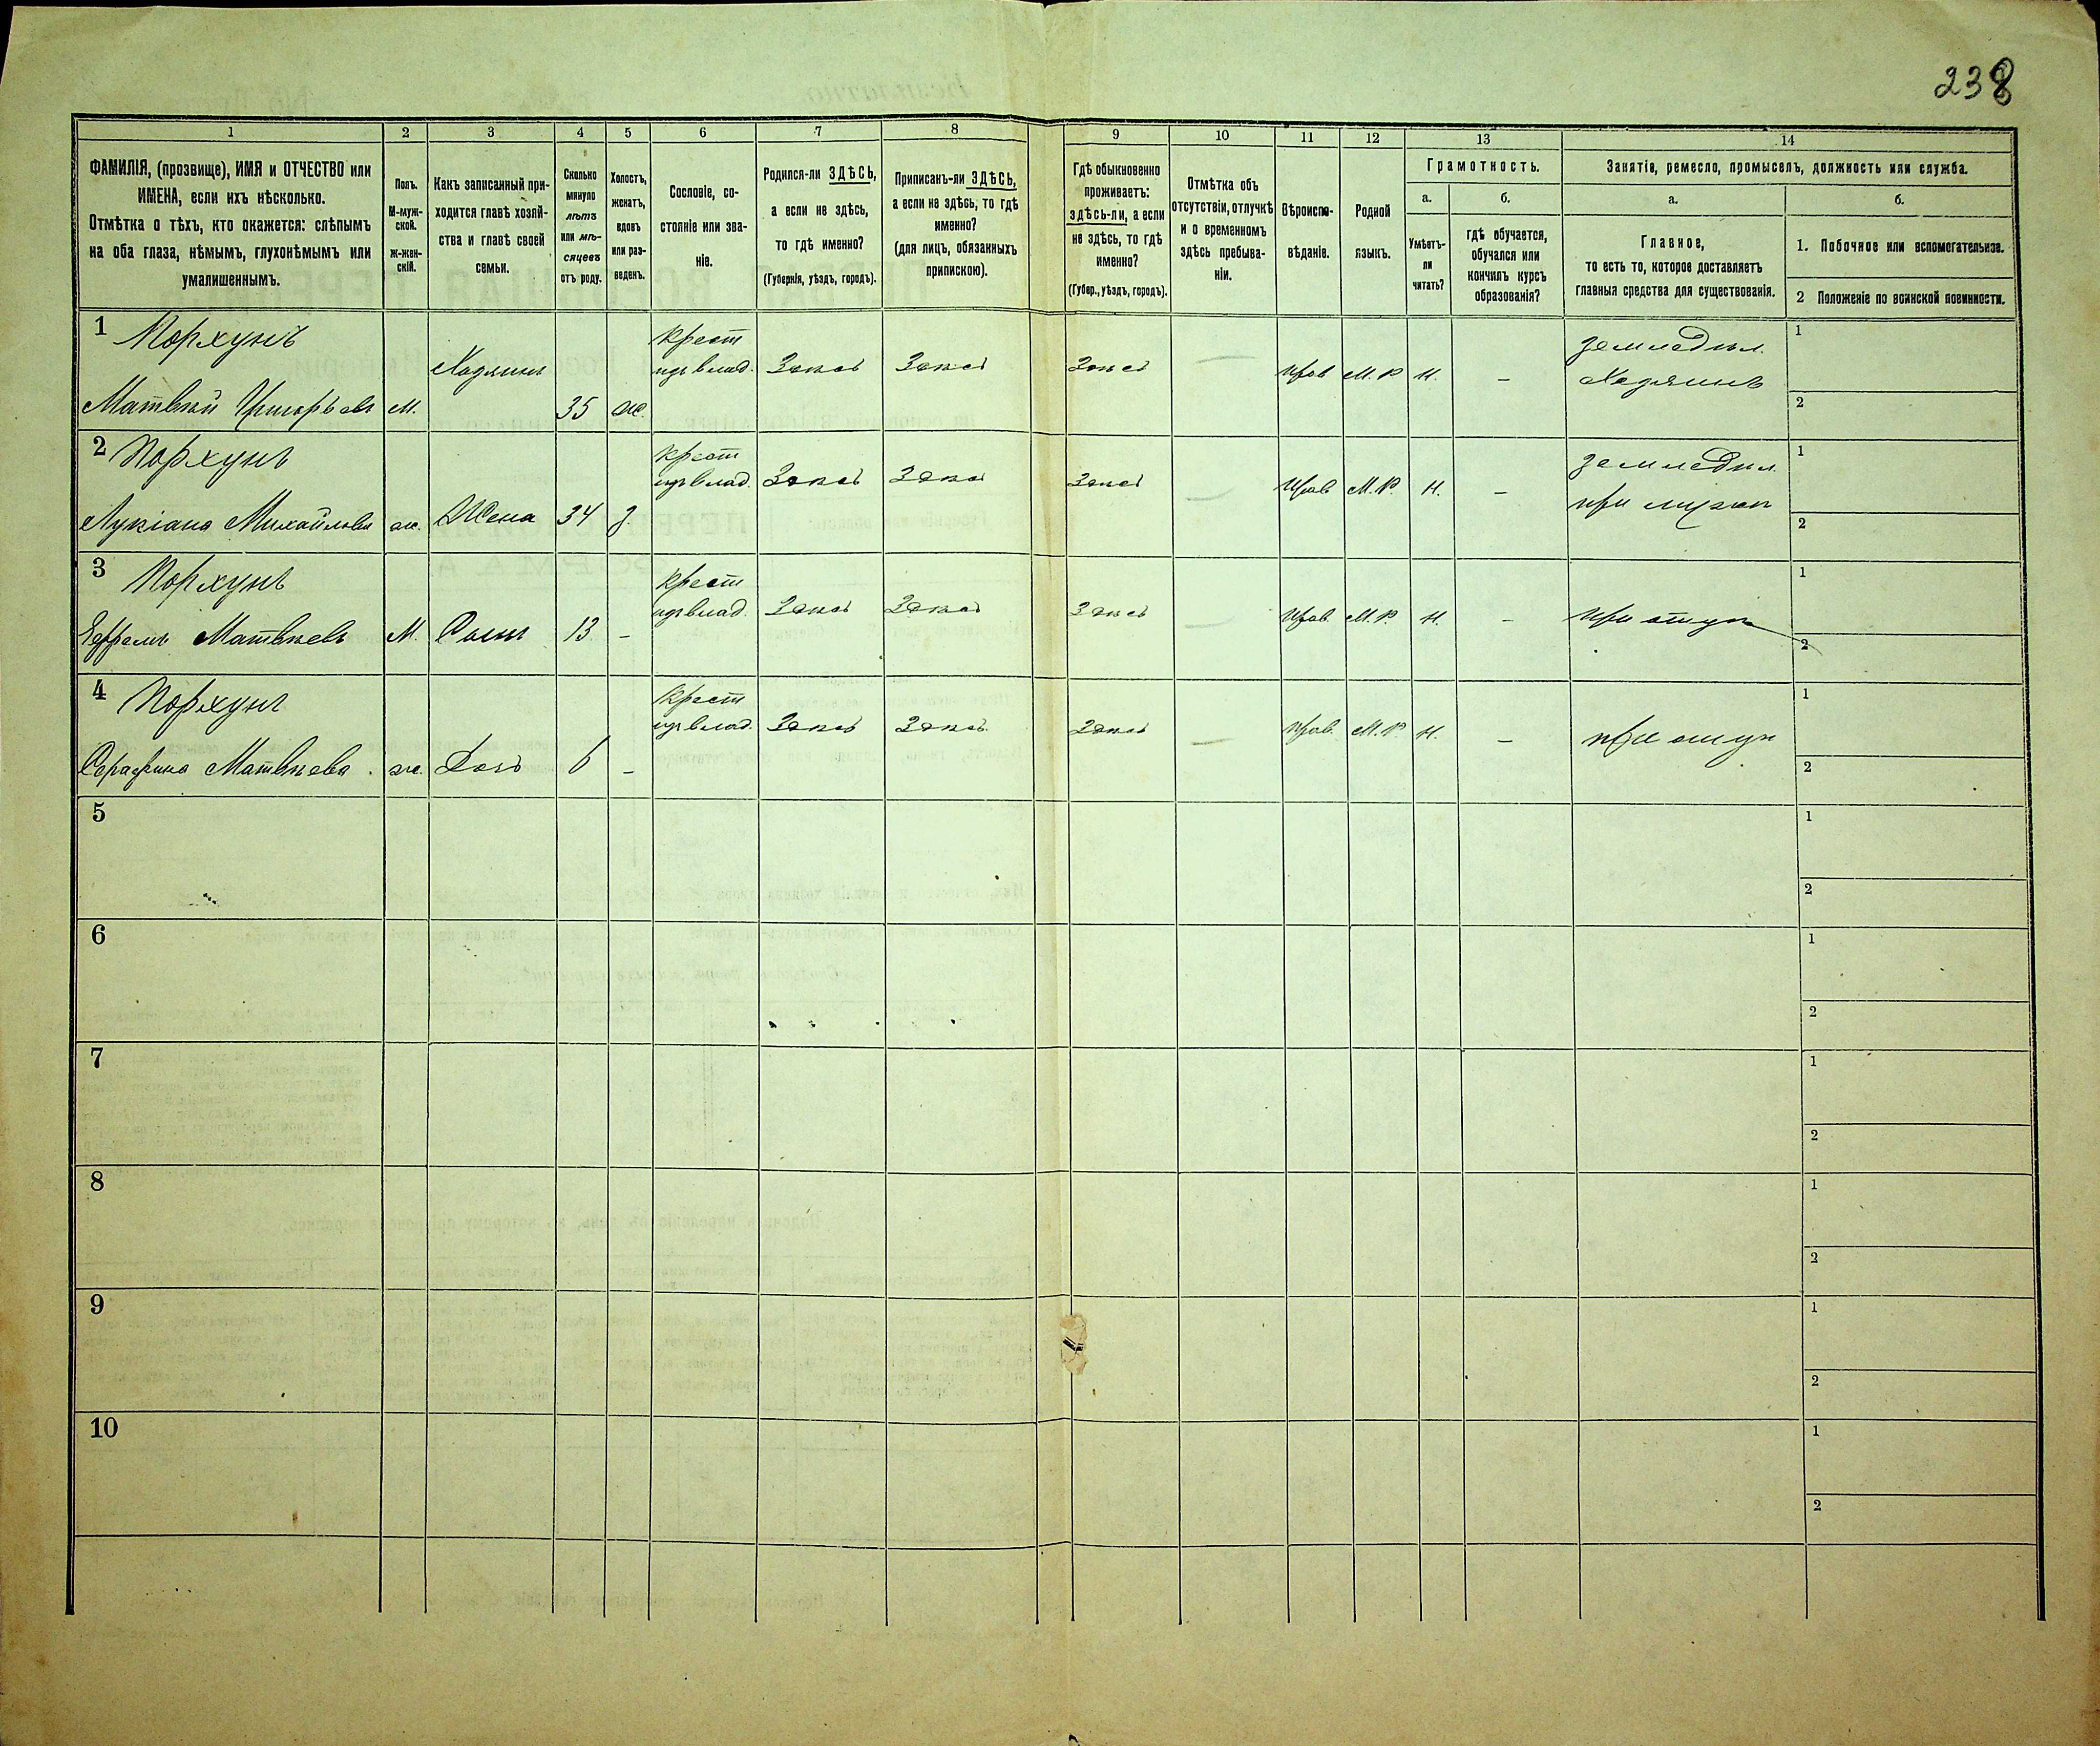 238
1
2
3
4
5
6
7
8
9
10
11
12
13
14
ФАМИЛІЯ, (прозвище), ИМЯ и ОТЧЕСТВО или
ИМЕНА, если ихъ нѣсколько.
Отмѣтка о тѣхъ, кто окажется: слѣпымъ
на оба глаза, нѣмымъ, глухонѣмымъ или
умалишеннымъ.
Полъ.
М-муж-
ской.
Ж-жен-
скій.
Какъ записанный при-
ходится главѣ хозяй-
ства и главѣ своей
семьи.
Сколько
минуло
лѣтъ
или мѣ-
сяцевъ
отъ роду.
Холостъ,
женатъ,
вдовъ
или раз-
веденъ.
Сословіе, со-
стояніе или зва-
ніе.
Родился-ли ЗДѢСЬ,
а если не здѣсь,
то гдѣ именно?
(Губернія, уѣздъ, городъ).
Приписанъ-ли ЗДѢСЬ,
а если не здѣсь, то гдѣ
именно?
(для лицъ, обязанныхъ
припискою).
Гдѣ обыкновенно
проживаетъ:
здѣсь-ли, а если
не здѣсь, то гдѣ
именно?
(Губер., уѣздъ, городъ).
Отмѣтка объ
отсутствіи, отлучкѣ
и о временномъ
здѣсь пребыва-
ніи.
Вѣроиспо-
вѣданіе.
Родной
языкъ.
Грамотность.
а.
Умѣетъ-
ли
читать?
б.
гдѣ обучается,
обучался или
кончилъ курсъ
образованія?
Занятіе, ремесло, промыселъ, должность или служба.
а.
Главное,
то есть то, которое доставляетъ
главныя средства для существованія.
б.
1. Побочное или вспомогательное.
2 Положеніе по воинской повинности.
1 Порхунъ
Матвѣй Григорьевъ м. Хозяинъ 35 ж. Крест владѣ. Здѣсь Здѣсь Здѣсь — Прав М. Р. Н. — земледѣл. Хозяинъ 1 2
2 Порхунъ
Лукіана Михайлова ж. Жена 34 з. Крест Здѣсь Здѣсь Здѣсь — Прав М. Р. Н. — земледѣл при мужѣ 1 2
3 Порхунъ
Ефремъ Матвѣевъ М. Сынъ 13 – Крест Здѣсь Здѣсь Здѣсь — Прав. М. Р. Н. – при отцѣ 1 2
4 Порхунъ
Серафима Матвѣева ж. Дочь 6 – Крест Здѣсь Здѣсь Здѣсь — Прав. М. Р. Н. – при отцѣ 1 2
5 1 2
6 1 2
7 1 2
8 1 2
9 1 2
10 1 2